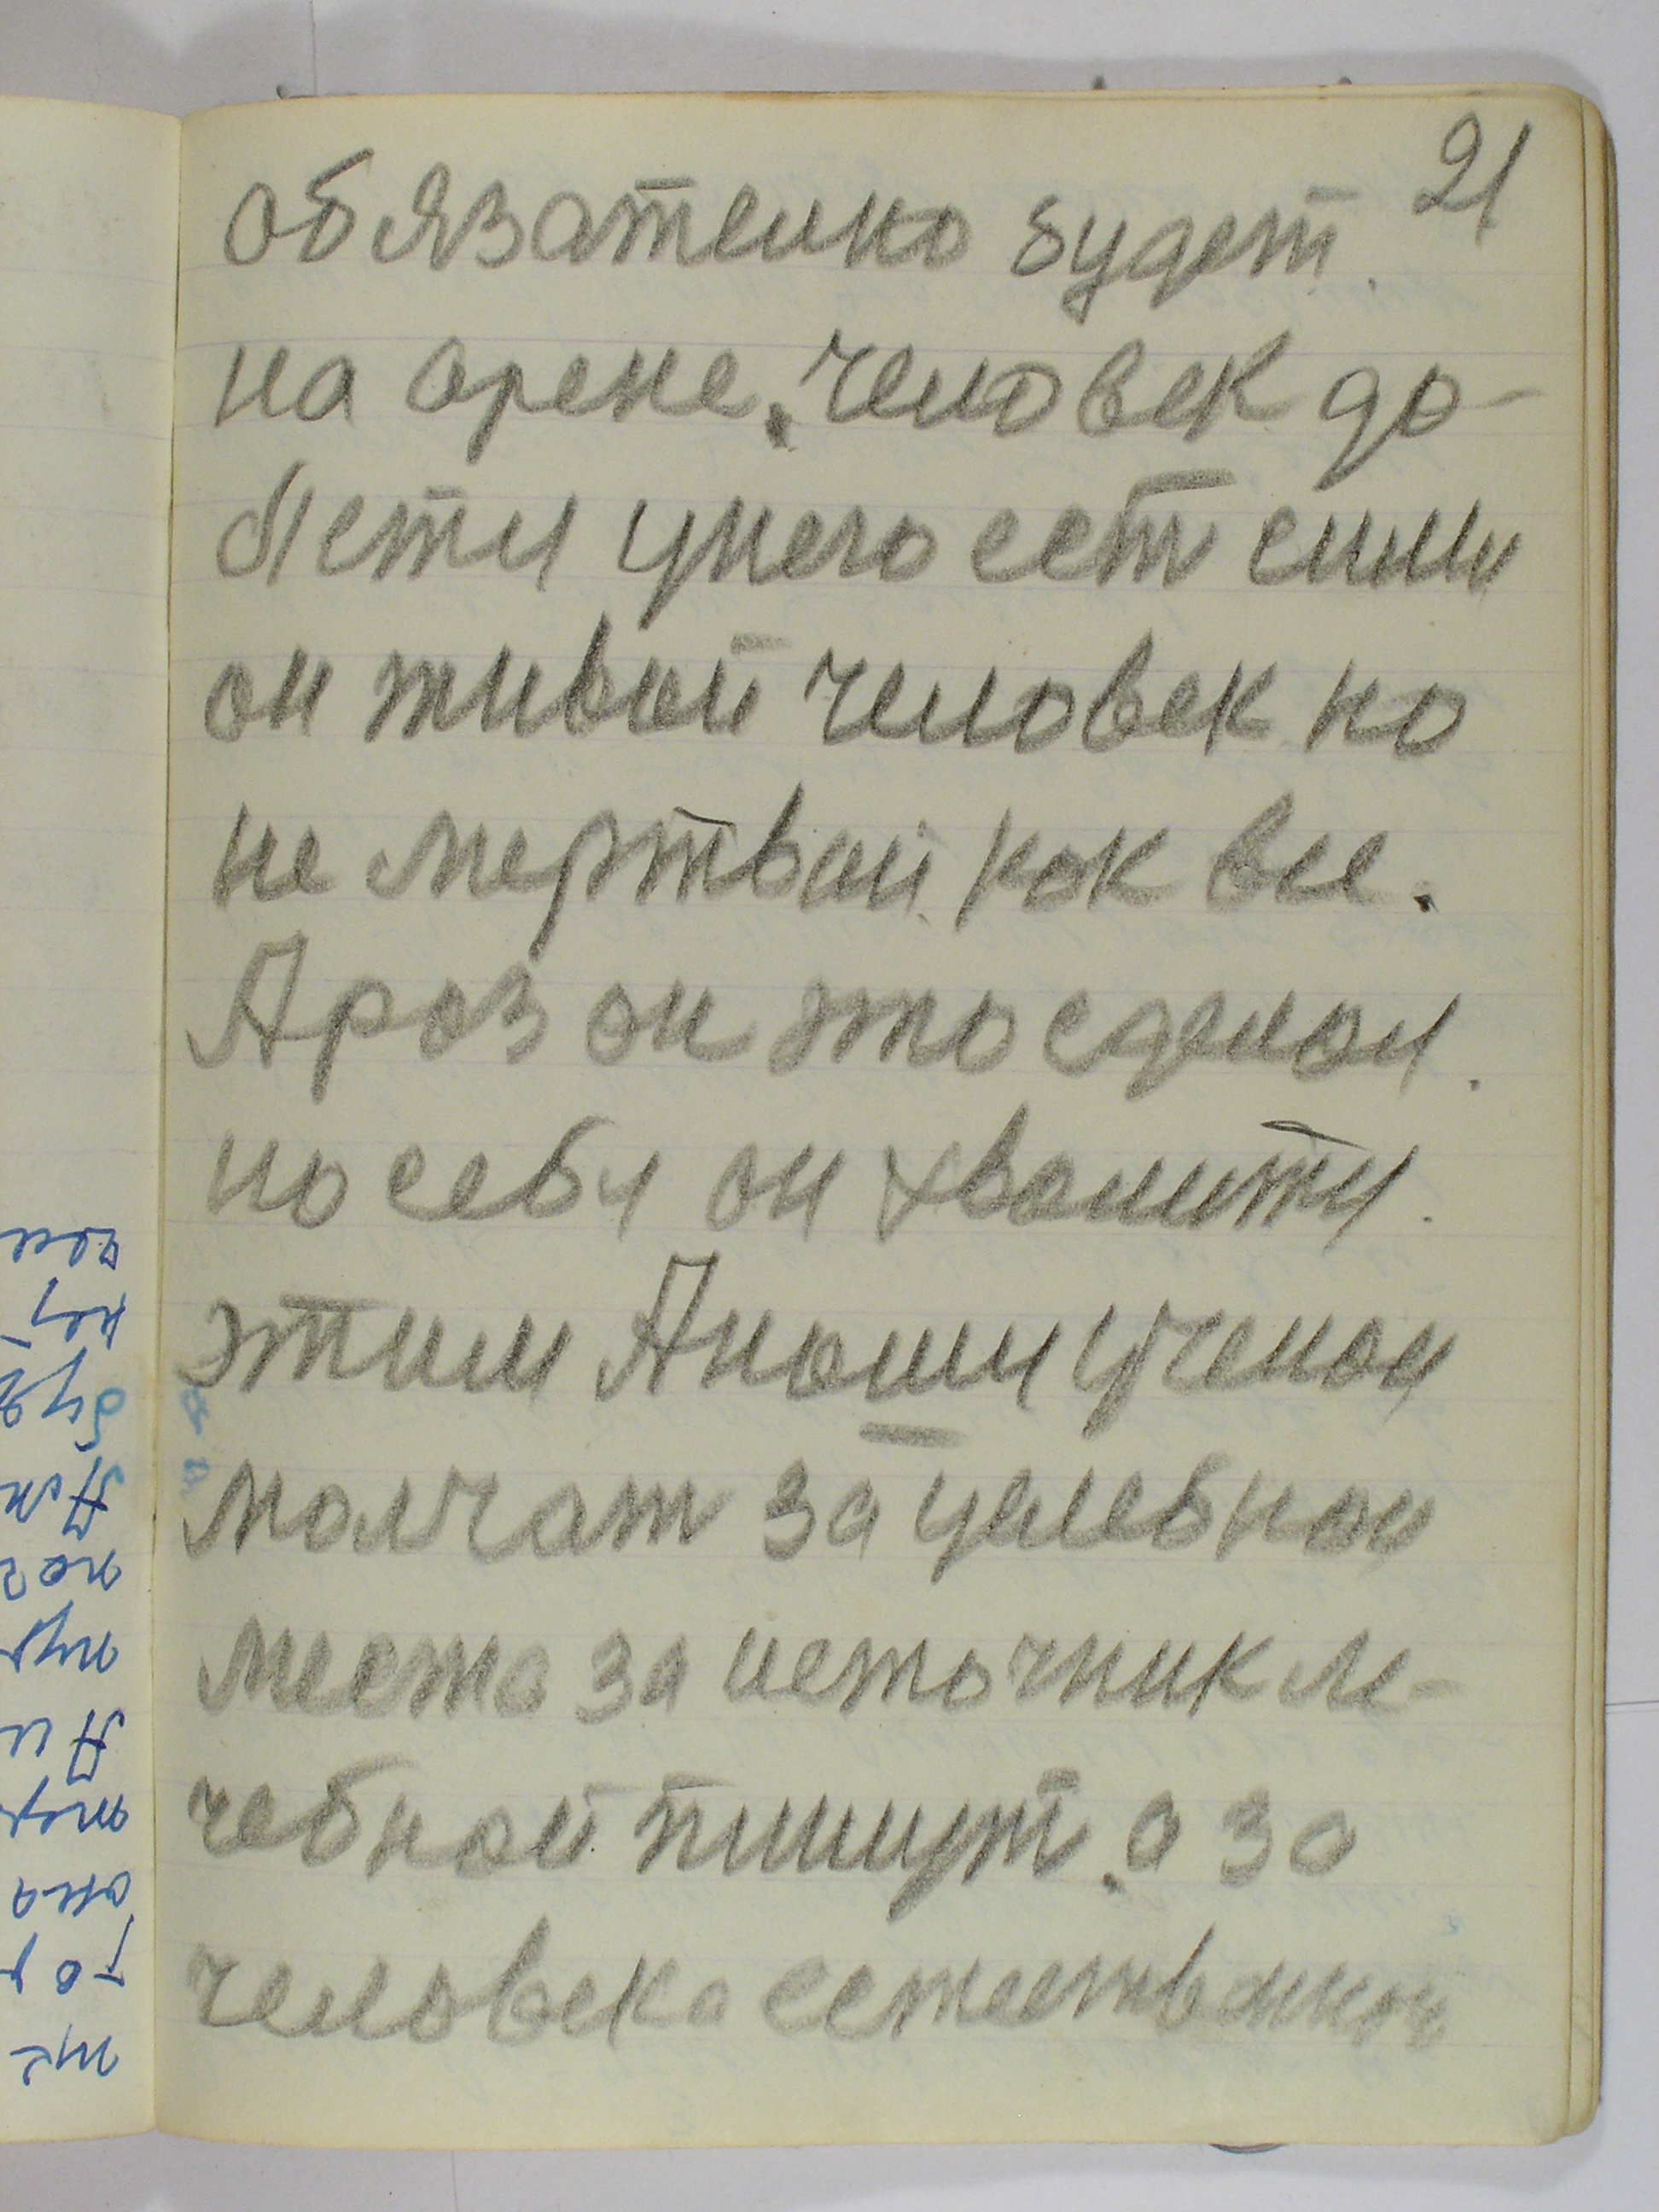 21
обязателно будет.
на арене. человек до-
бется унего ест силы
он живой человек но
не мертвый как все.
А раз он это сделал.
но себя он хвалитя.
этим А наши ученои
молчат за целебнои
места за источник ле-
чебной пишут. а за
человека естественои